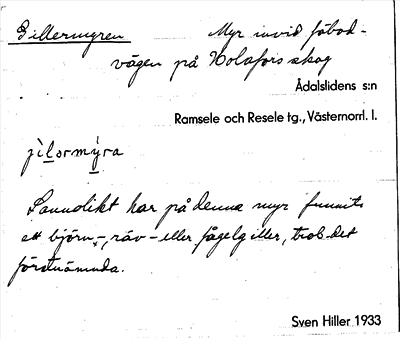 Gillermyren Myr invid fäbod-
vägen på Holafors skog
Ådalslidens s:n
Ramsele och Resele tg., Västernorrl. l.
jìlormýra
Sannolikt har på denna myr funnits
ett björn-, räv- eller fågelgiller, trol. det
förstnämnda.
Sven Hiller 1933